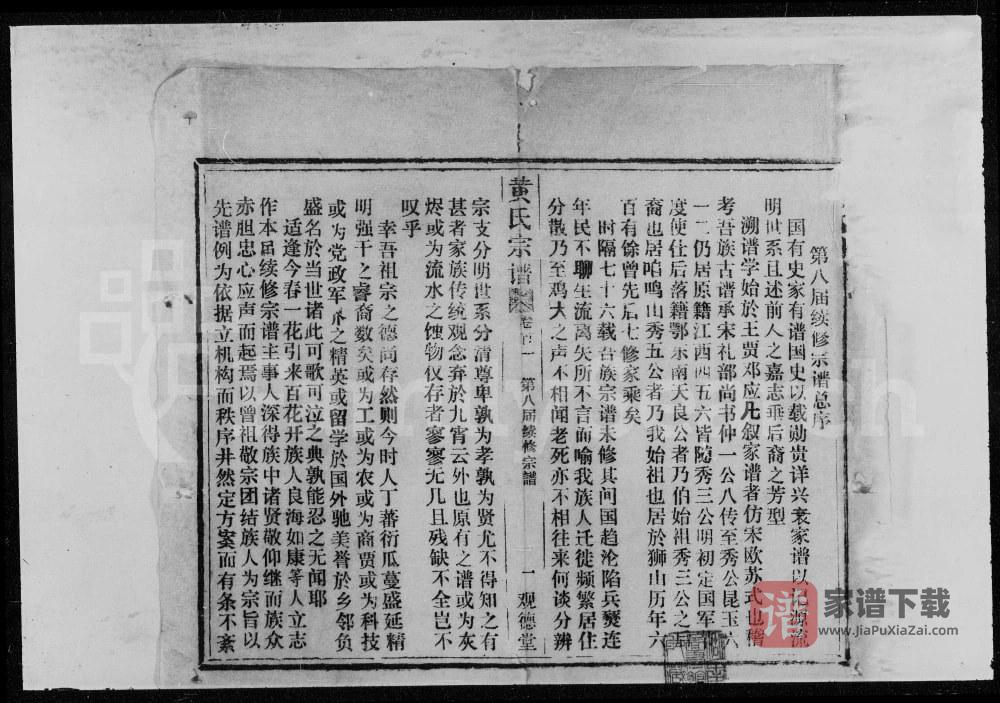 第八届续修宗谱总序
国有史家有谱国史以载勋贵详兴衰家谱以记源流
明世系且述前人之嘉志垂后裔之芳型
溯谱学始於王贾邓应凡叙家谱者仿宋欧苏式也稽
考吾族古谱承宋礼部尚书仲一公八传至秀公昆玉六
一二仍居原籍江西四五六皆随秀三公明初定国军
度使仕后落籍鄂东南天良公者乃伯始祖秀三公之
裔也居咱鸣山秀五公者乃我始祖也居於狮山历年六
百有馀曾先后七修家乘矣
时隔七十六载吾族宗谱未修其间国趋沦陷兵燹连
年民不聊生流离失所不言而喻我族人迁徙频繁居住
分散乃至鸡犬之声不相闻老死亦不相往来何谈分辨
黄氏宗谱
卷首一
第八届续修宗谱
一
观德堂
宗支分明世系分清尊卑孰为孝孰为贤尤不得知之有
甚者家族传统观念弃於九宵云外也原有之谱或为灰
烬或为流水之蚀物仅存者寥寥无几且残缺不全岂不
叹乎
幸吾祖宗之德尚存然则今时人丁蕃衍瓜蔓盛延精
明强干之睿裔数矣或为工或为农或为商贾或为科技
或为党政军爪之精英或留学於国外驰美誉於乡邻负
盛名於当世诸此可歌可泣之典孰能忍之无闻耶
适逢今春一花引来百花开族人良海如康等人立志
作本届续修宗谱主事人深得族中诸贤敬仰继而族众
赤胆忠心应声而起焉以曾祖敬宗团结族人为宗旨以
先谱例为依据立机构而秩序井然定方案而有条不紊
谱
家谱下载
www.JiaPuXiaZai.com